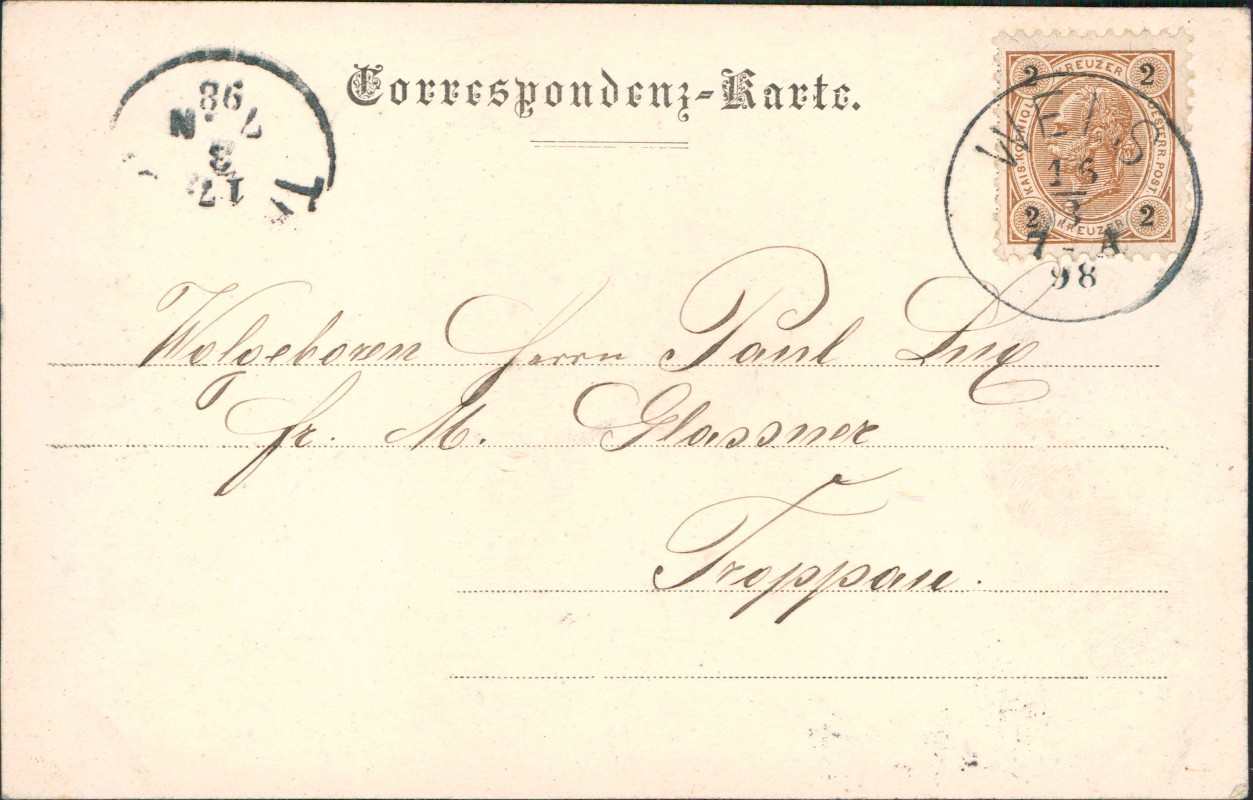 Correspondenz-Karte.
2 KREUZER 2
KAIS. KÖNIGL. OESTERR. POST.
2 KREUZER 2
WELS
16
3
7 - A
98
98
7. N
3
17
T
Wolgeboren Herrn Paul Lux
fr. M. Glassner
Troppau.